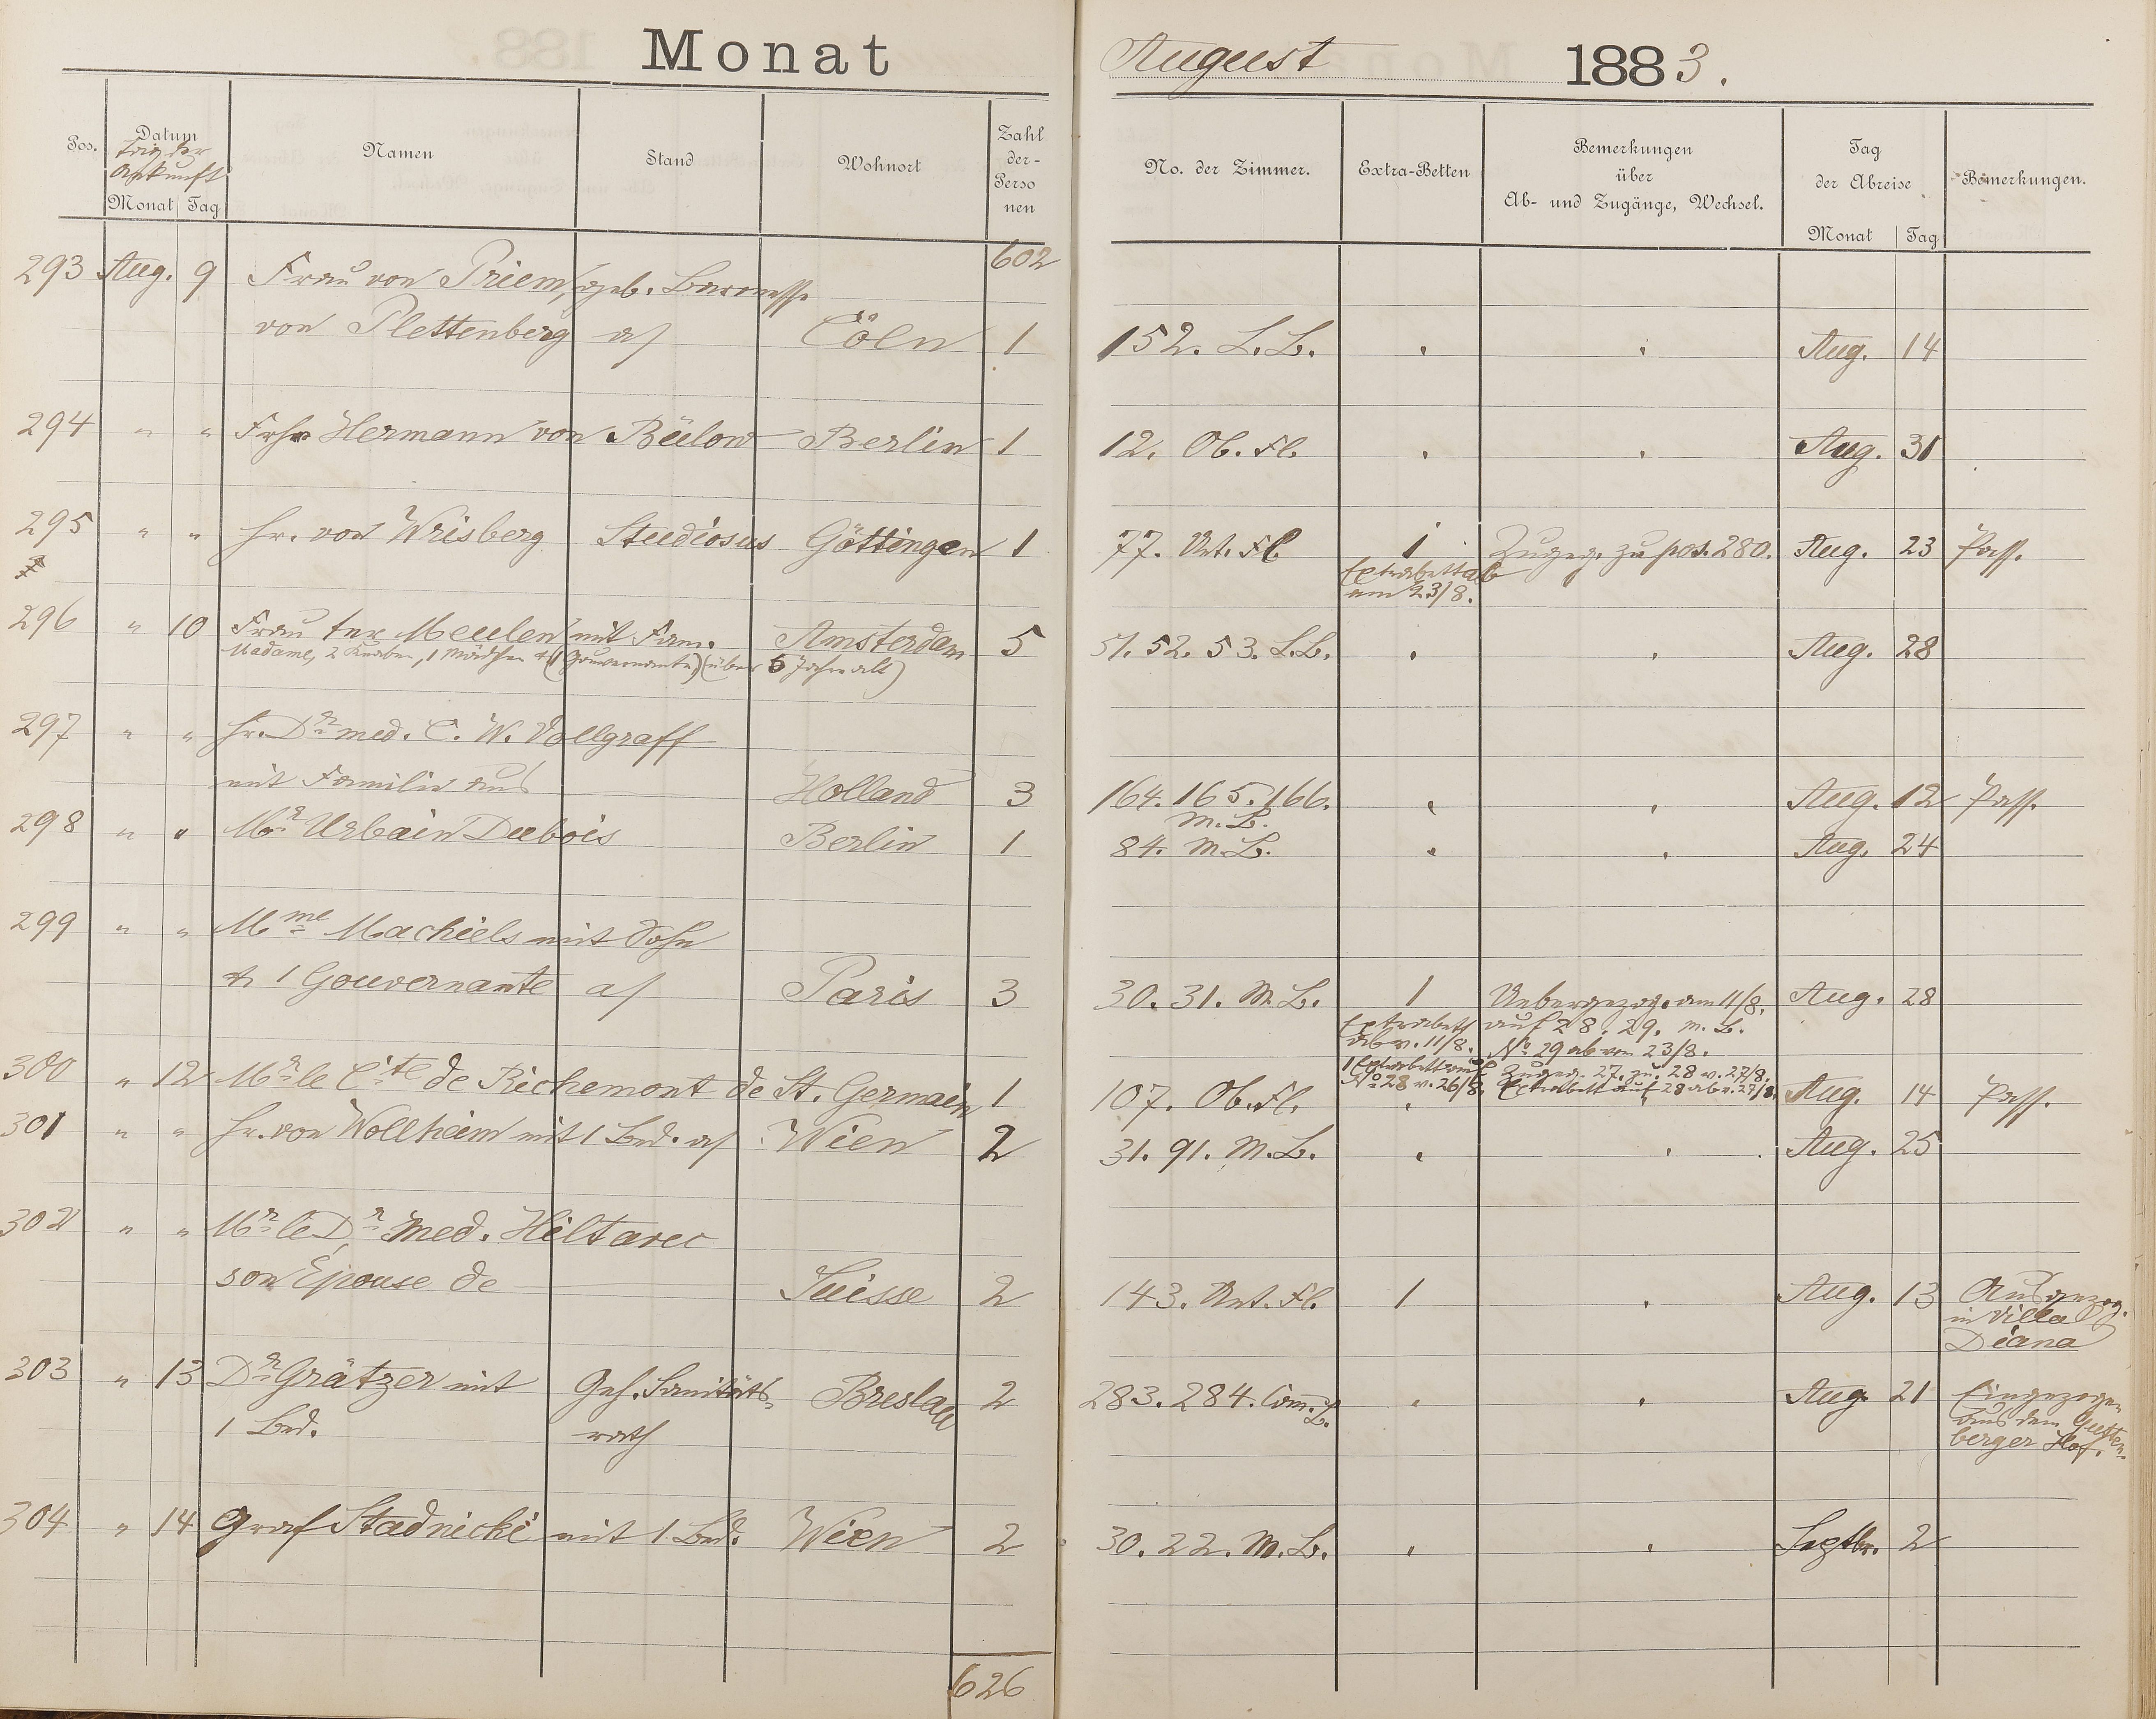 Monat August 1883.
Pos. Datum Namen Stand Wohnort Zahl der Personen No. der Zimmer. Extra-Betten Bemerkungen über Ab- und Zugänge, Wechsel. Tag der Abreise Bemerkungen.
Tag der Ankunft
Monat Tag Monat Tag
602
293 Aug. 9 Frau von Priem, geb. Baronesse
von Plettenberg a/ Cöln 1 152. L.B. Aug. 14
294 " " Frhr Hermann von Bülow Berlin 1 12. Ob. Fl. Aug. 31
295 " " Hr. von Wrisberg Studiosus Göttingen 1 77. Unt. Fl. 1 Zugeg. zu pos. 280. Aug. 23 Pass.
Extrabett ab
am 23/8.
296 " 10 Frau ter Meulen mit Fam. Amsterdam 5 51. 52. 53. L.B. Aug. 28
Madame, 2 Knaben, 1 Mädchen & (1 Gouvernante) (über 5 Jahre alt)
297 " " Hr. Dr. med. C. W. Vollgraff
mit Familie aus Holland 3 164. 165. 166. Aug. 12 Pass.
M. B.
298 " " Mr. Urbain Dubois Berlin 1 84. M.B. Aug. 24
299 " " Mme Machiels mit Sohn
& 1 Gouvernante a/ Paris 3 30. 31. M.B. 1 Uebergezog. am 11/8. Aug. 28
Extrabett auf 28. 29. M. B.
ab v. 11/8. No 29 ab von 23/8.
1 Extrabett auf Zugeg. 27. zu 28 v. 27/8.
No 28 v. 26/8. Extrabett auf 28 ab v. 27/8.
300 " 12 Mr. le Cte de Richemont de St. Germain 1 107. Ob. Fl. Aug. 14 Pass.
301 " " Hr. von Wollheim mit 1 Bed. a/ Wien 2 31. 91. M.B. Aug. 25
302 " " Mr. le Dr. Med. Hilt avec
son Epouse de Suisse 2 143. Unt. Fl. 1 Aug. 13 Ausgezog.
in Villa
Diana
303 " 13 Dr. Grätzer mit Geh. Sanitäts- Breslau 2 283. 284. Com. B. Aug. 21 Eingezogen
1 Bed. rath aus dem Gutten-
berger Hof.
304 " 14 Graf Stadnicki mit 1 Bed. Wien 2 30. 22. M.B. Septbr. 2
626